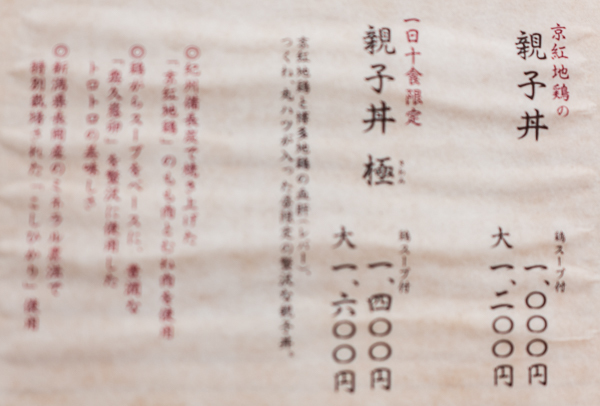 京紅地鶏の
親子丼
鶏スープ付
一、〇〇〇円
大 一、二〇〇円
一日十食限定
親子丼 極
きわみ
鶏スープ付
一、四〇〇円
大 一、六〇〇円
京紅地鶏と博多地鶏の血肝(レバー)、
つくね、丸ハツが入った贅沢な親子丼。
〇紀州備長炭で焼き上げた
「京紅地鶏」のもも肉とむね肉を使用
〇鶏がらスープをベースに、
を贅沢に使用した
トロトロの美味しさ
〇新潟県長岡産の
特別栽培された「こしひかり」使用